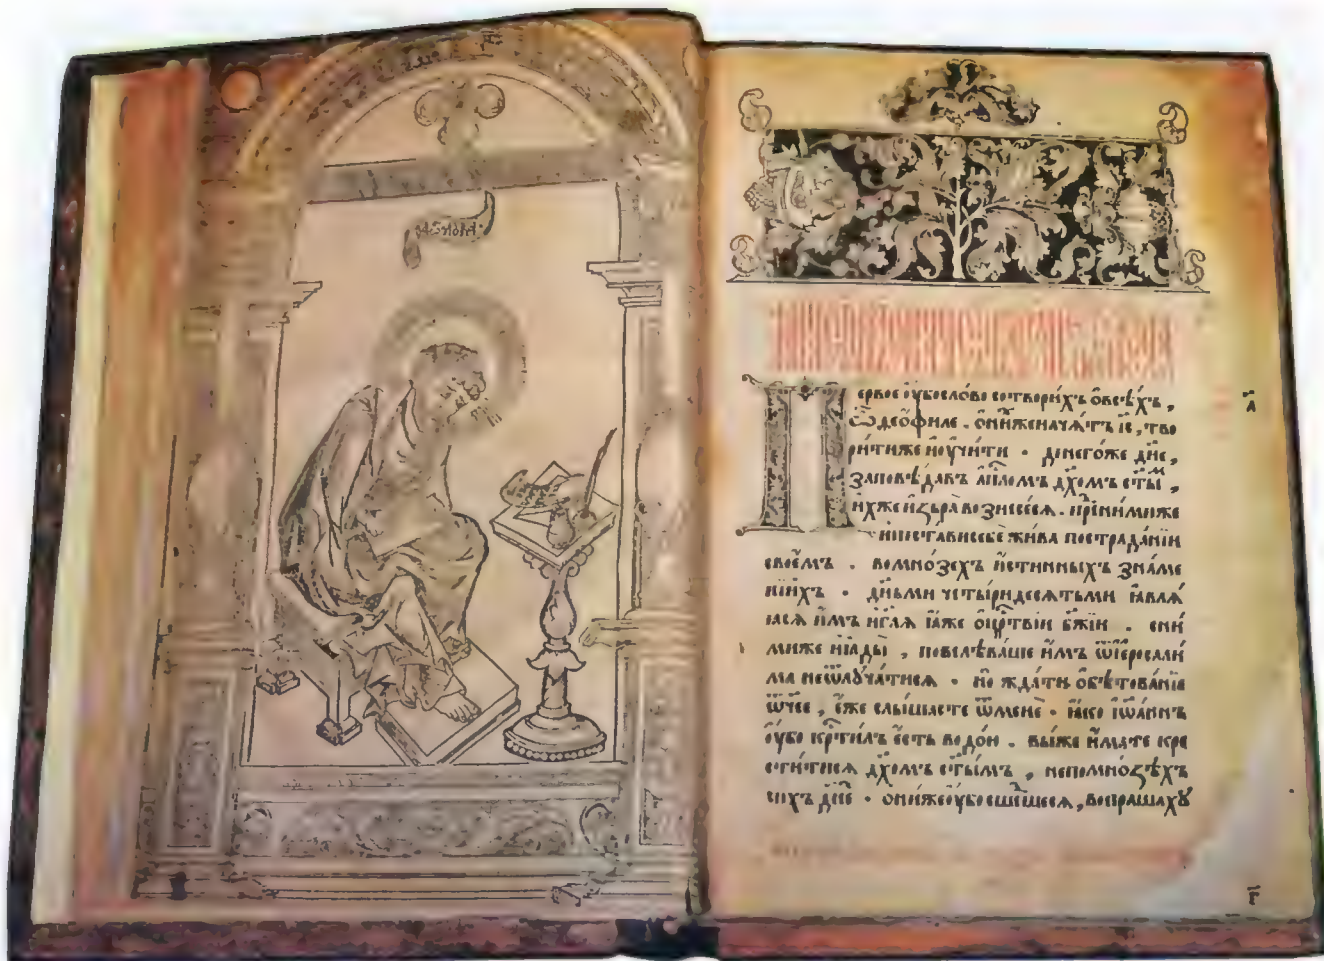 первое ᲂу҆бо сло́во сотвори́хъ ѻ҆ всѣ́хъ ,
ѽ ѳео́филе . ѻ҆ ни́хже нача́тъ і҆с , тво
ри́тиже и҆ ᲂу҆чи́ти . до него́же дн҃е ,
заповѣ́давъ а҆пⷭ҇ломъ дх҃омъ ст҃ыⷨ ,
и҆́хже и҆збра̀ вознесе́сѧ . пред ни́миже
и҆ поста́ви себѐ жи́ва по страда́нїи
свое́мъ . во мно́зехъ и҆́стинныхъ зна́ме
нїихъ . дн҃ьми четы́ридесѧтьми ꙗ҆влѧ́
ꙗсѧ и҆̀мъ и҆ гл҃ѧ ꙗ҆́же ѻ҆ црⷭ҇твїи бж҃їи . сни́
миже и҆ ꙗды̀ , повелѣва́ше и҆̀мъ ѿ і҆ерⷭ҇али́
ма не ѿлꙋча́тисѧ . но жда́ти ѻ҆бѣтова́нїѧ
ѻ҆́ч҃ее , є҆́же слы́шасте ѿ менѐ . ꙗ҆́ко і҆ѡа́ннъ
ᲂу҆́бо крⷭ҇ти́лъ є҆́сть водо́ю . вы́же и҆́мате кре
сти́тисѧ дх҃омъ ст҃ы́мъ , не по мно́ѕѣхъ
си́хъ дн҃е . ѻ҆ни́же ᲂу҆́бо сше́дшесѧ , вопраша́хꙋ
а҃